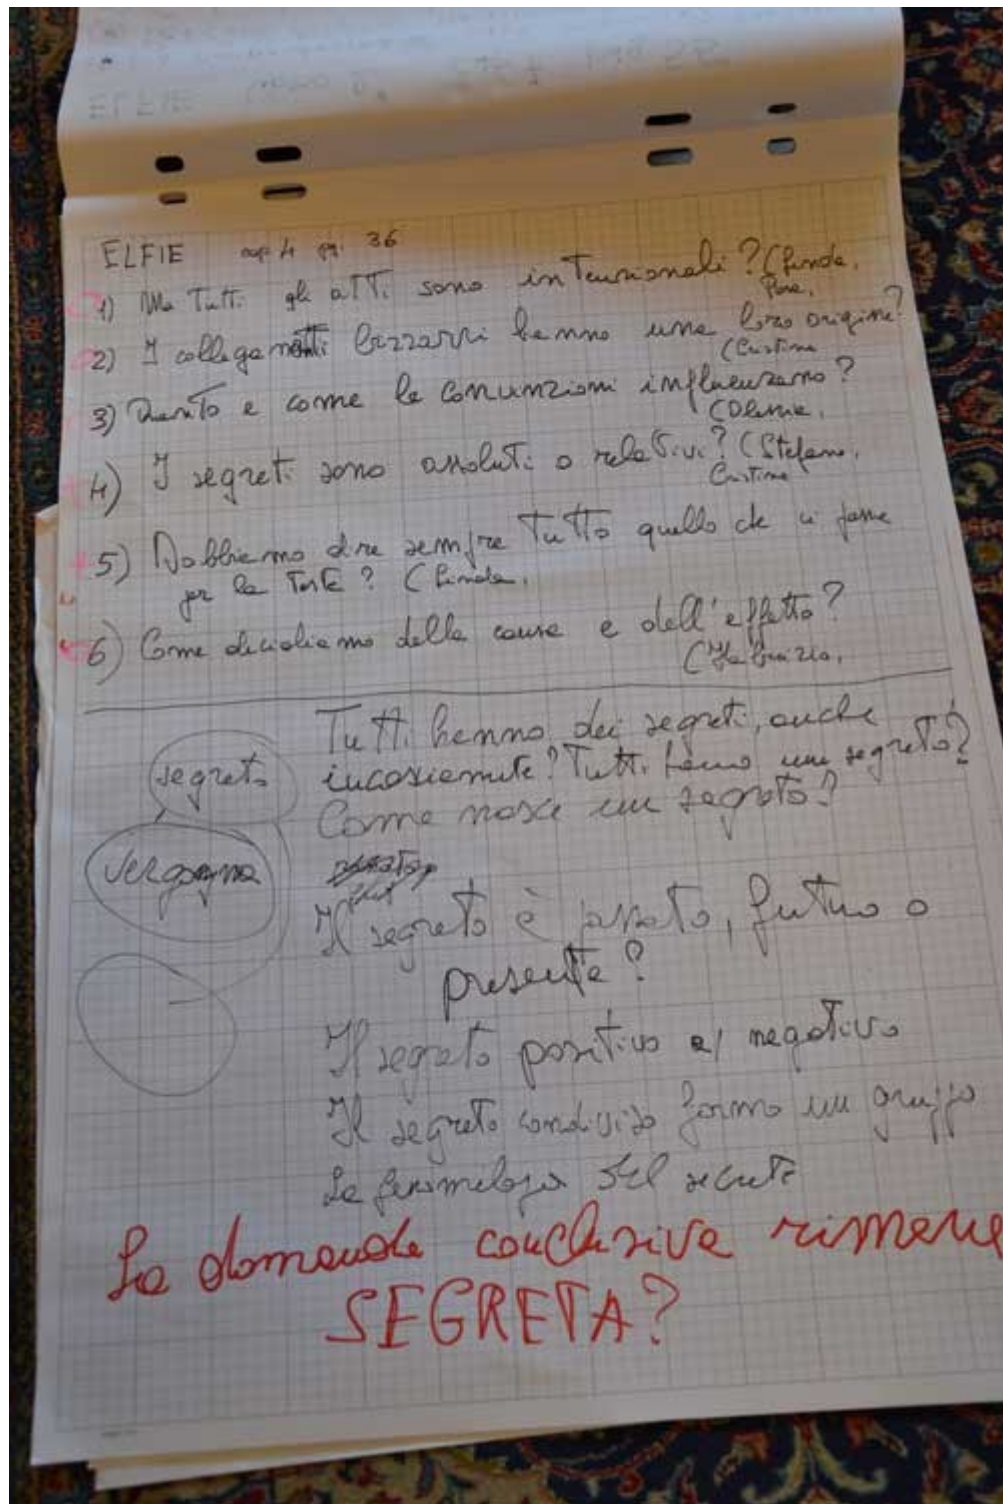 ELFIE cap 4 pg. 36
1) Ma Tutti gli atti sono intenzionali? (Linda,
2) I collegamenti bizzarri hanno una loro origine?
(Cristina
3) Quanto e come le convinzioni influenzano?
4) I segreti sono assoluti o relativi? (Stefano,
Cristina
5) Dobbiamo dire sempre Tutto quello che ci passa
per la Testa? (Linda,
6) Come decidiamo della causa e dell'effetto?
(Fabrizio,
Tutti hanno dei segreti, anche
segreto
Tutti un segreto?
Come nasce un segreto?
vergogna
Il segreto è passato, futuro o
presente?
Il segreto positivo e/ negativo
Il segreto condiviso forma un gruppo
La
La domanda conclusiva rimane
SEGRETA?